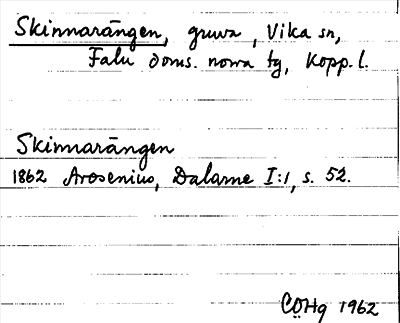 Skinnarängen, gruva, Vika sn,
Falu doms. norra tg, Kopp. l.
Skinnarängen
1862 Arosenius, Dalarne I:1, s. 52.
CÖHg 1962